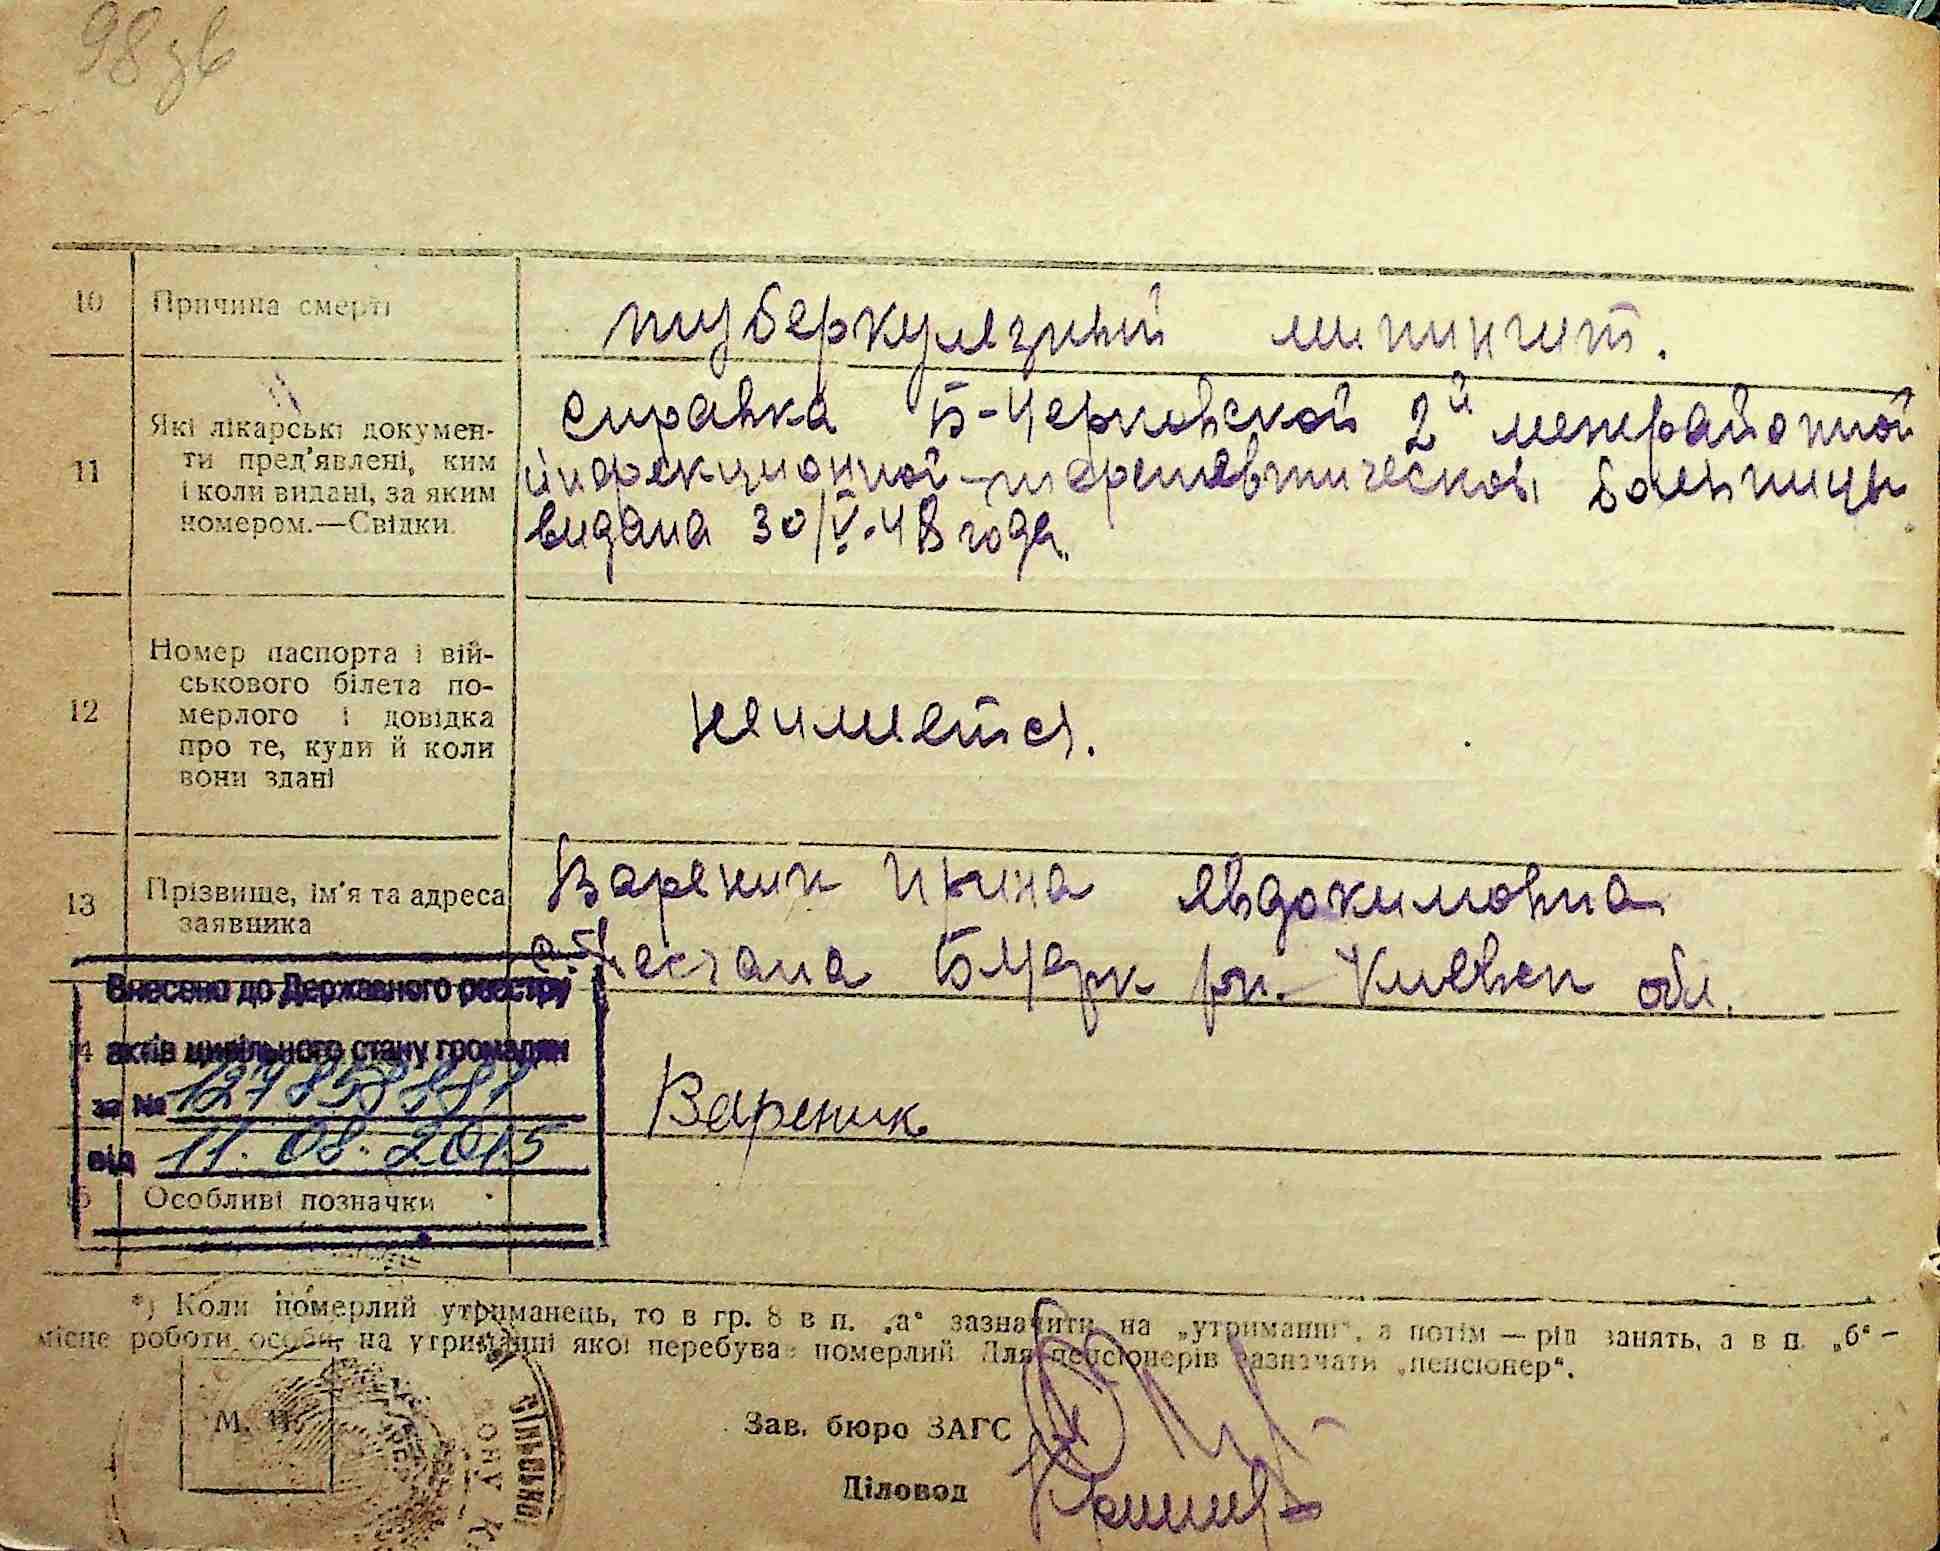 98 зв
10 Причина смерті
туберкулезний минингит.
11 Які лікарські докумен-
ти пред'явлені, ким
і коли видані, за яким
номером.—Свідки.
справка Б-Церковской 2й межрайонной
инфекционной-терапевтической больницы
видана 30/V-48 года.
12 Номер паспорта і вій-
ськового білета по-
мерлого і довідка
про те, куди й коли
вони здані
не имеется.
13 Прізвище, ім'я та адреса
заявника
Вареник Ирина Явдокимовна
с. Песчана БЦерк рн. Киевск обл.
Внесено до Державного реєстру
14 актів цивільного стану громадян
за № 127858881
від 11.08.2015
Вареник
15 Особливі позначки
*) Коли померлий утриманець, то в гр. 8 в п. „а“ зазначити на „утриманні“, а потім — рід занять, а в п. „б“ —
місце роботи особи, на утриманні якої перебував померлий. Для пенсіонерів зазначати „пенсіонер“.
М. П.
СІЛЬСЬКОЇ
Зав. бюро ЗАГС
Діловод